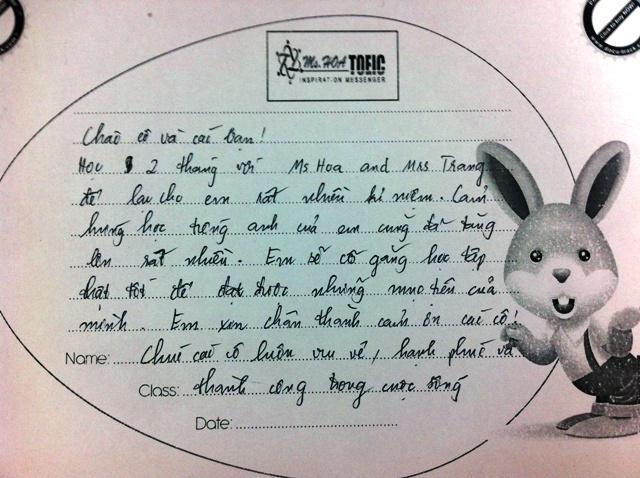 Ms. HOA TOEIC
INSPIRATION MESSENGER
Chào cô và các bạn!
Học 2 tháng với Ms Hoa and Mrs Trang
để lại cho em rất nhiều kỉ niệm. Cảm
hứng học tiếng anh của em cũng đã tăng
lên rất nhiều. Em sẽ cố gắng học tập
thật tốt để đạt được những mục tiêu của
mình. Em xin chân thành cảm ơn các cô!
Name: Chúc các cô luôn vui vẻ, hạnh phúc và
Class: thành công trong cuộc sống
Date: